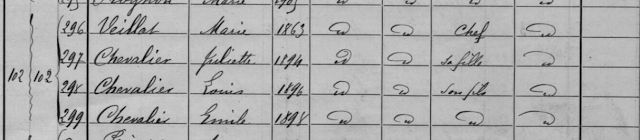 Marie 1903
296 Veillat Marie 1863 d d Chef d
297 Chevalier Juliette 1894 d d sa fille d
102 102 298 Chevalier Louis 1896 d d son fils d
299 Chevalier Emile 1898 d d d d